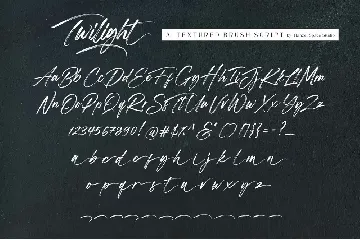 Twilight
A TEXTURED BRUSH SCRIPT
Aa Bb Cc Dd Ee Ff Gg Hh Ii Jj Kk Ll Mm
Nn Oo Pp Qq Rr Ss Tt Uu Vv Ww Xx Yy Zz
1234567890!@#$%^&*(){}[]-=?_
a b c d e f g h i j k l m n
o p q r s t u v w x y z